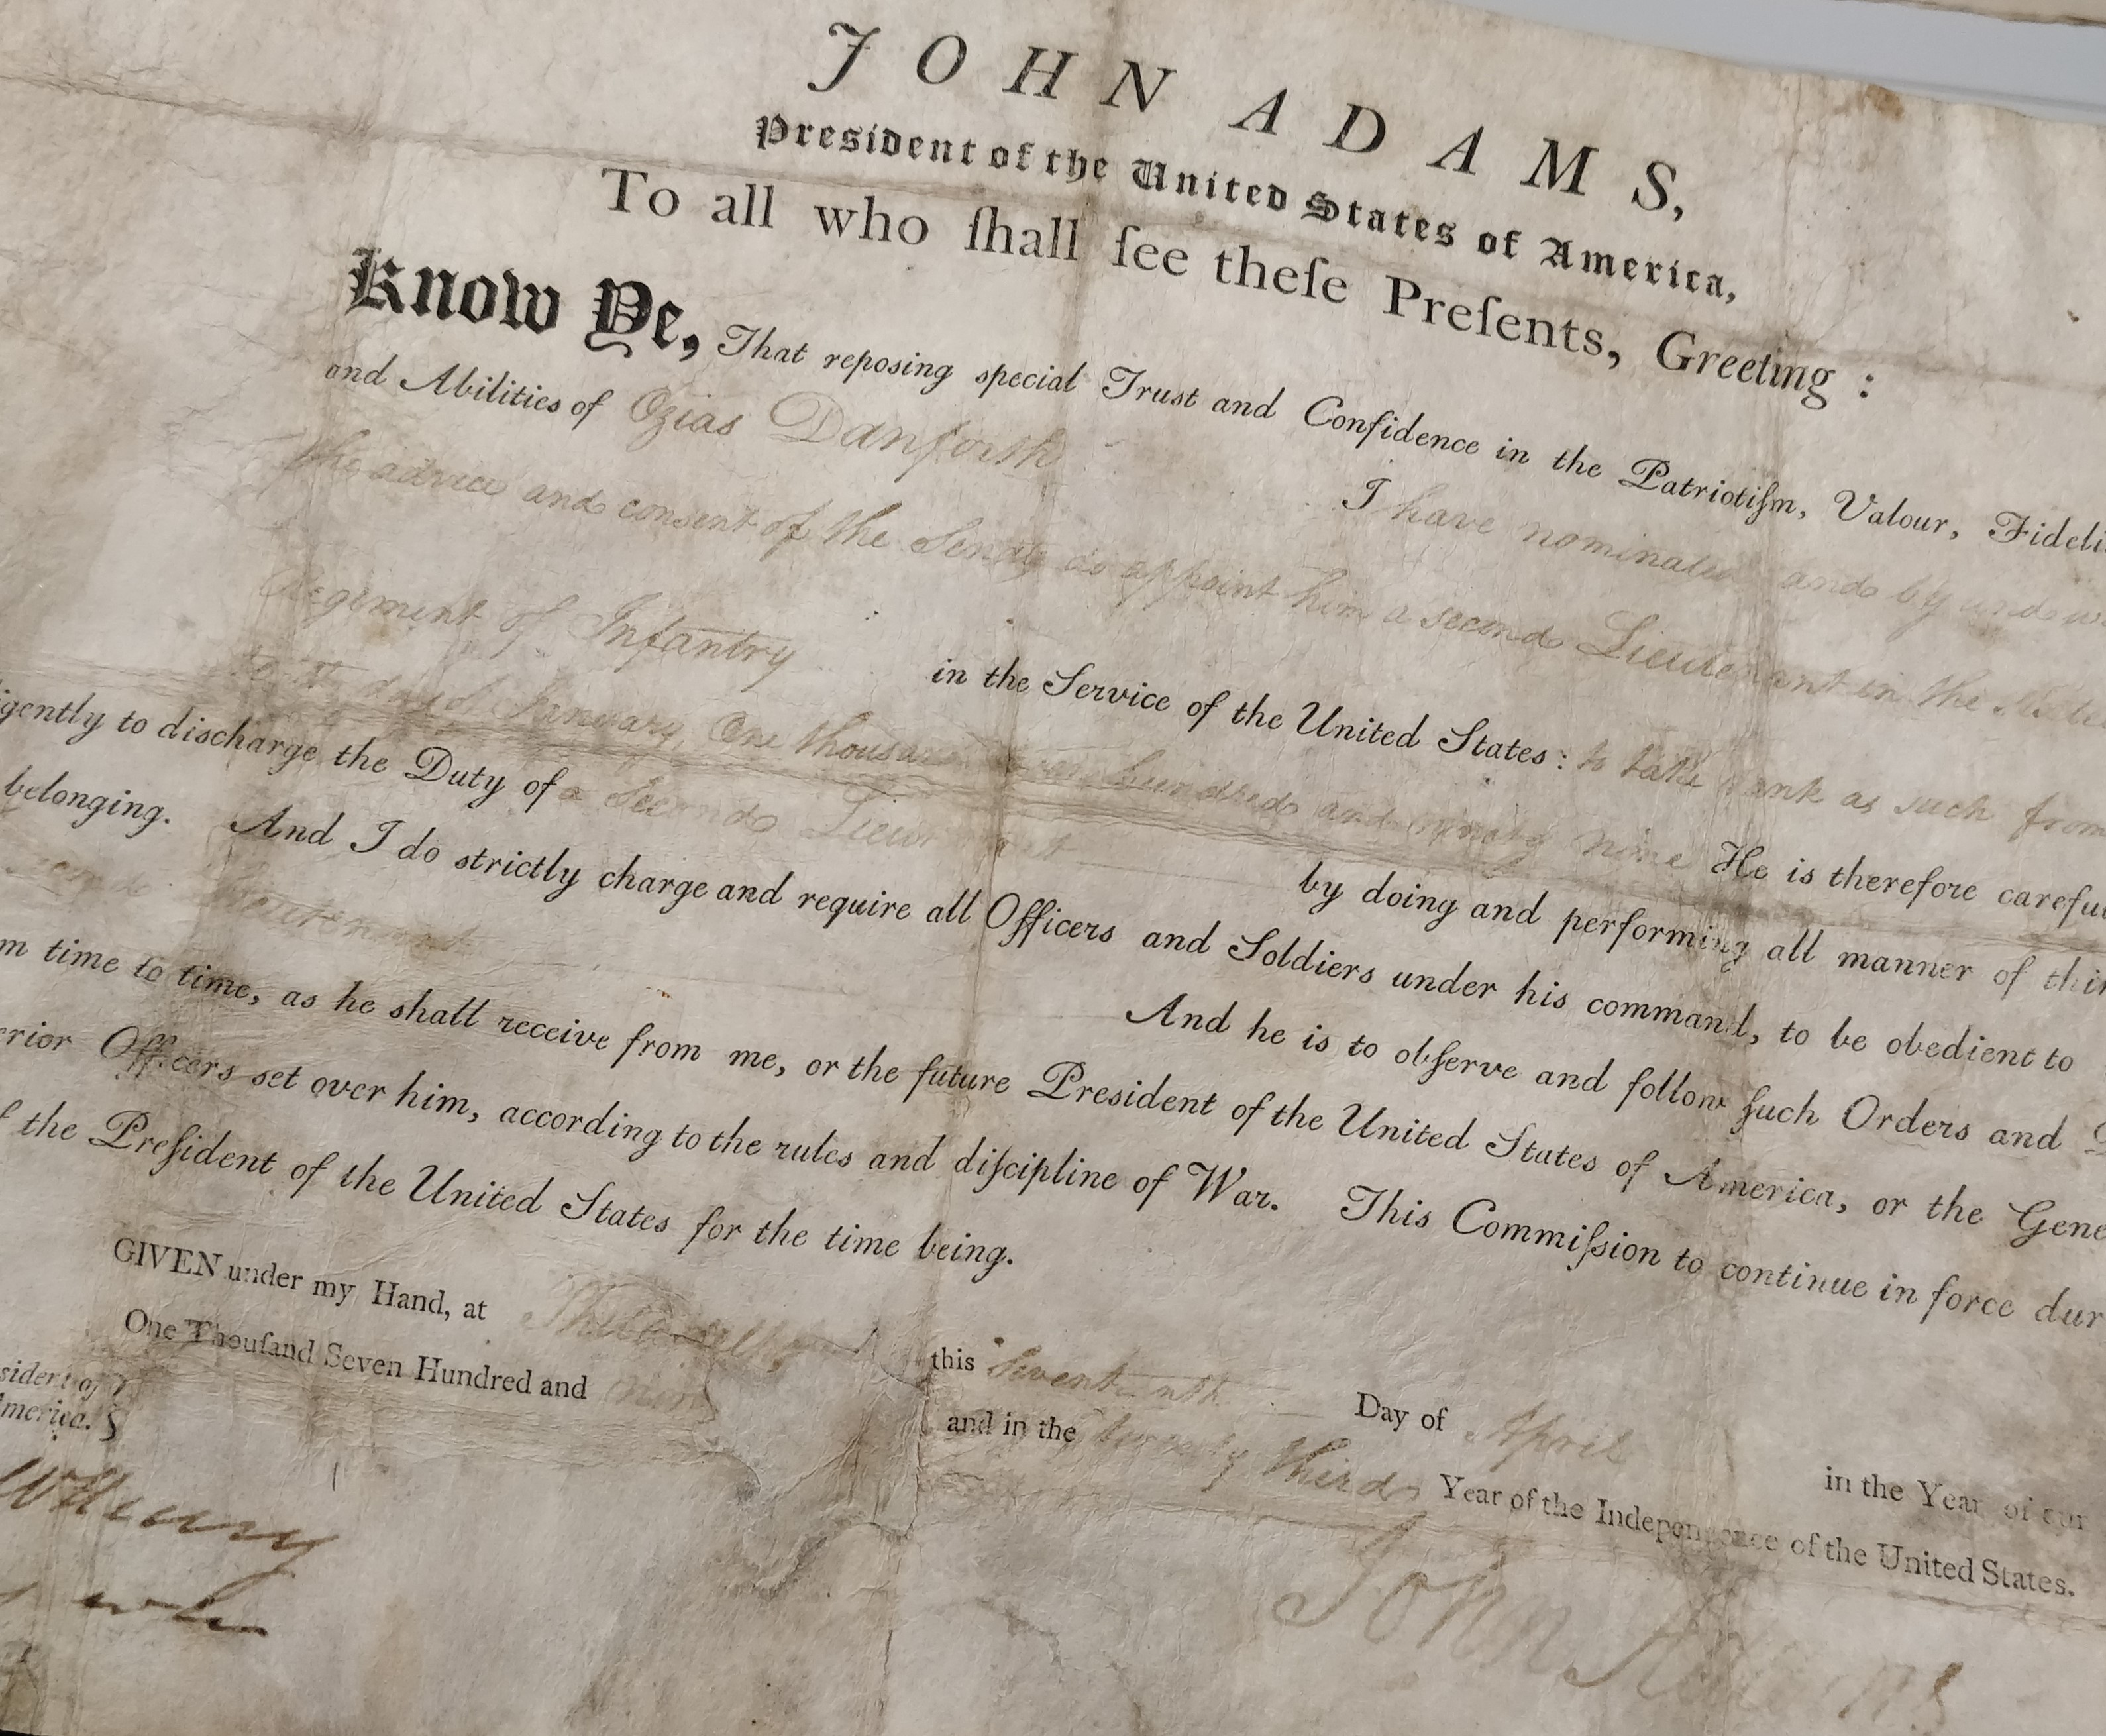 JOHN ADAMS,
President of the United States of America,
To all who ſhall ſee theſe Preſents, Greeting :
Know Ye, That reposing special Trust and Confidence in the Patriotiſm, Valour, Fideli
and Abilities of Ozias Danforth I have nominated and by and w
the advice and consent of the Senate do appoint him a second Lieutenant in the
Regiment of Infantry in the Service of the United States : to take rank as such from
day of January, One thousand seven hundred and ninety nine He is therefore carefu
igently to discharge the Duty of a Second Lieutenant by doing and performing all manner of thin
belonging. And I do strictly charge and require all Officers and Soldiers under his command, to be obedient to
econd Lieutenant And he is to obſerve and follow ſuch Orders and
m time to time, as he shall receive from me, or the future President of the United States of America, or the Gene
erior Officers set over him, according to the rules and diſcipline of War. This Commiſsion to continue in force dur
f the Preſident of the United States for the time being.
GIVEN under my Hand, at Philadelphia this Seventeenth Day of April in the Year of our
One Thouſand Seven Hundred and and in the twenty third Year of the Independence of the United States.
sident of
America.
John Adams